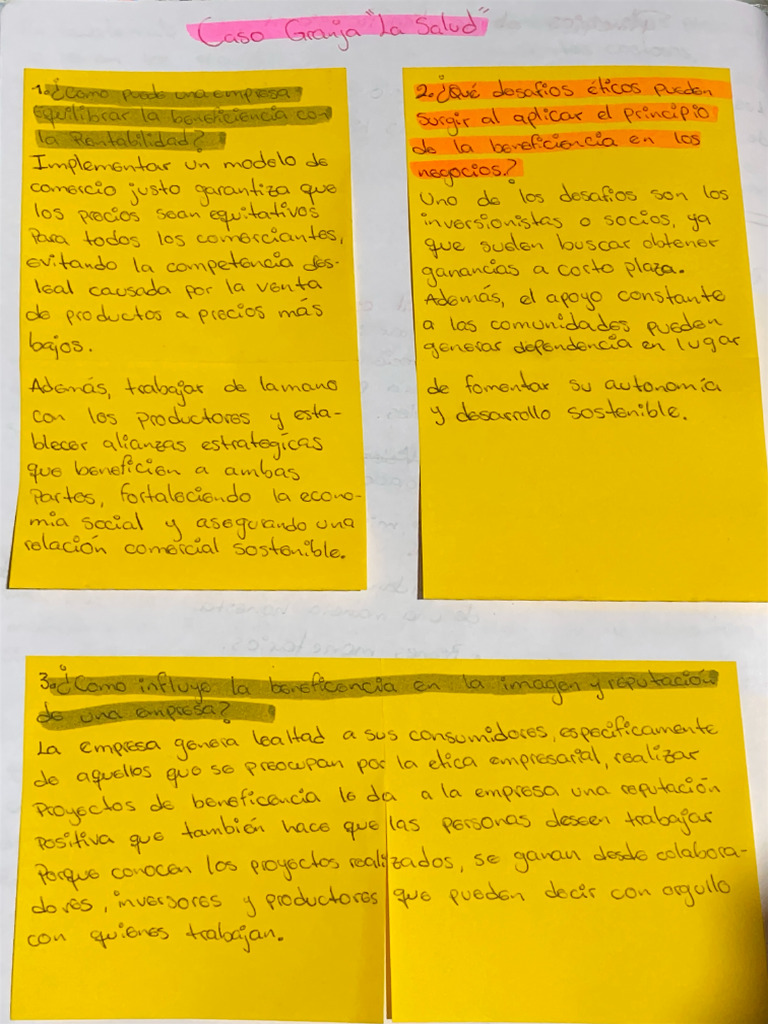 Caso Granja "La Salud"
1. ¿Como puede una empresa
equilibrar la beneficiencia con
la Rentabilidad?
Implementar un modelo de
comercio justo garantiza que
los precios sean equitativos
Para todos los comerciantes,
evitando la competencia des-
leal causada por la venta
de productos a precios más
bajos.
Además, trabajar de la mano
con los productores y esta-
blecer alianzas estrategicas
que beneficien a ambas
Partes, fortaleciendo la econo-
mía social y asegurando una
relación comercial sostenible.
2. ¿Qué desafios éticos pueden
surgir al aplicar el principio
de la beneficiencia en los
negocios?
Uno de los desafios son los
inversionistas o socios, ya
que suelen buscar obtener
ganancias a corto plaza.
Además, el apoyo constante
a las comunidades pueden
generar dependencia en lugar
de fomentar su autonomía
y desarrollo sostenible.
3. ¿Como influye la beneficencia en la imagen y reputación
de una empresa?
La empresa genera lealtad a sus consumidores, especificamente
de aquellos que se preocupan por la etica empresarial, realizar
Proyectos de beneficencia le da a la empresa una reputación
Positiva que también hace que las personas deseen trabajar
Porque conocen los proyectos realizados, se ganan desde colabora-
dores, inversores y productores que pueden decir con orgullo
con quienes trabajan.